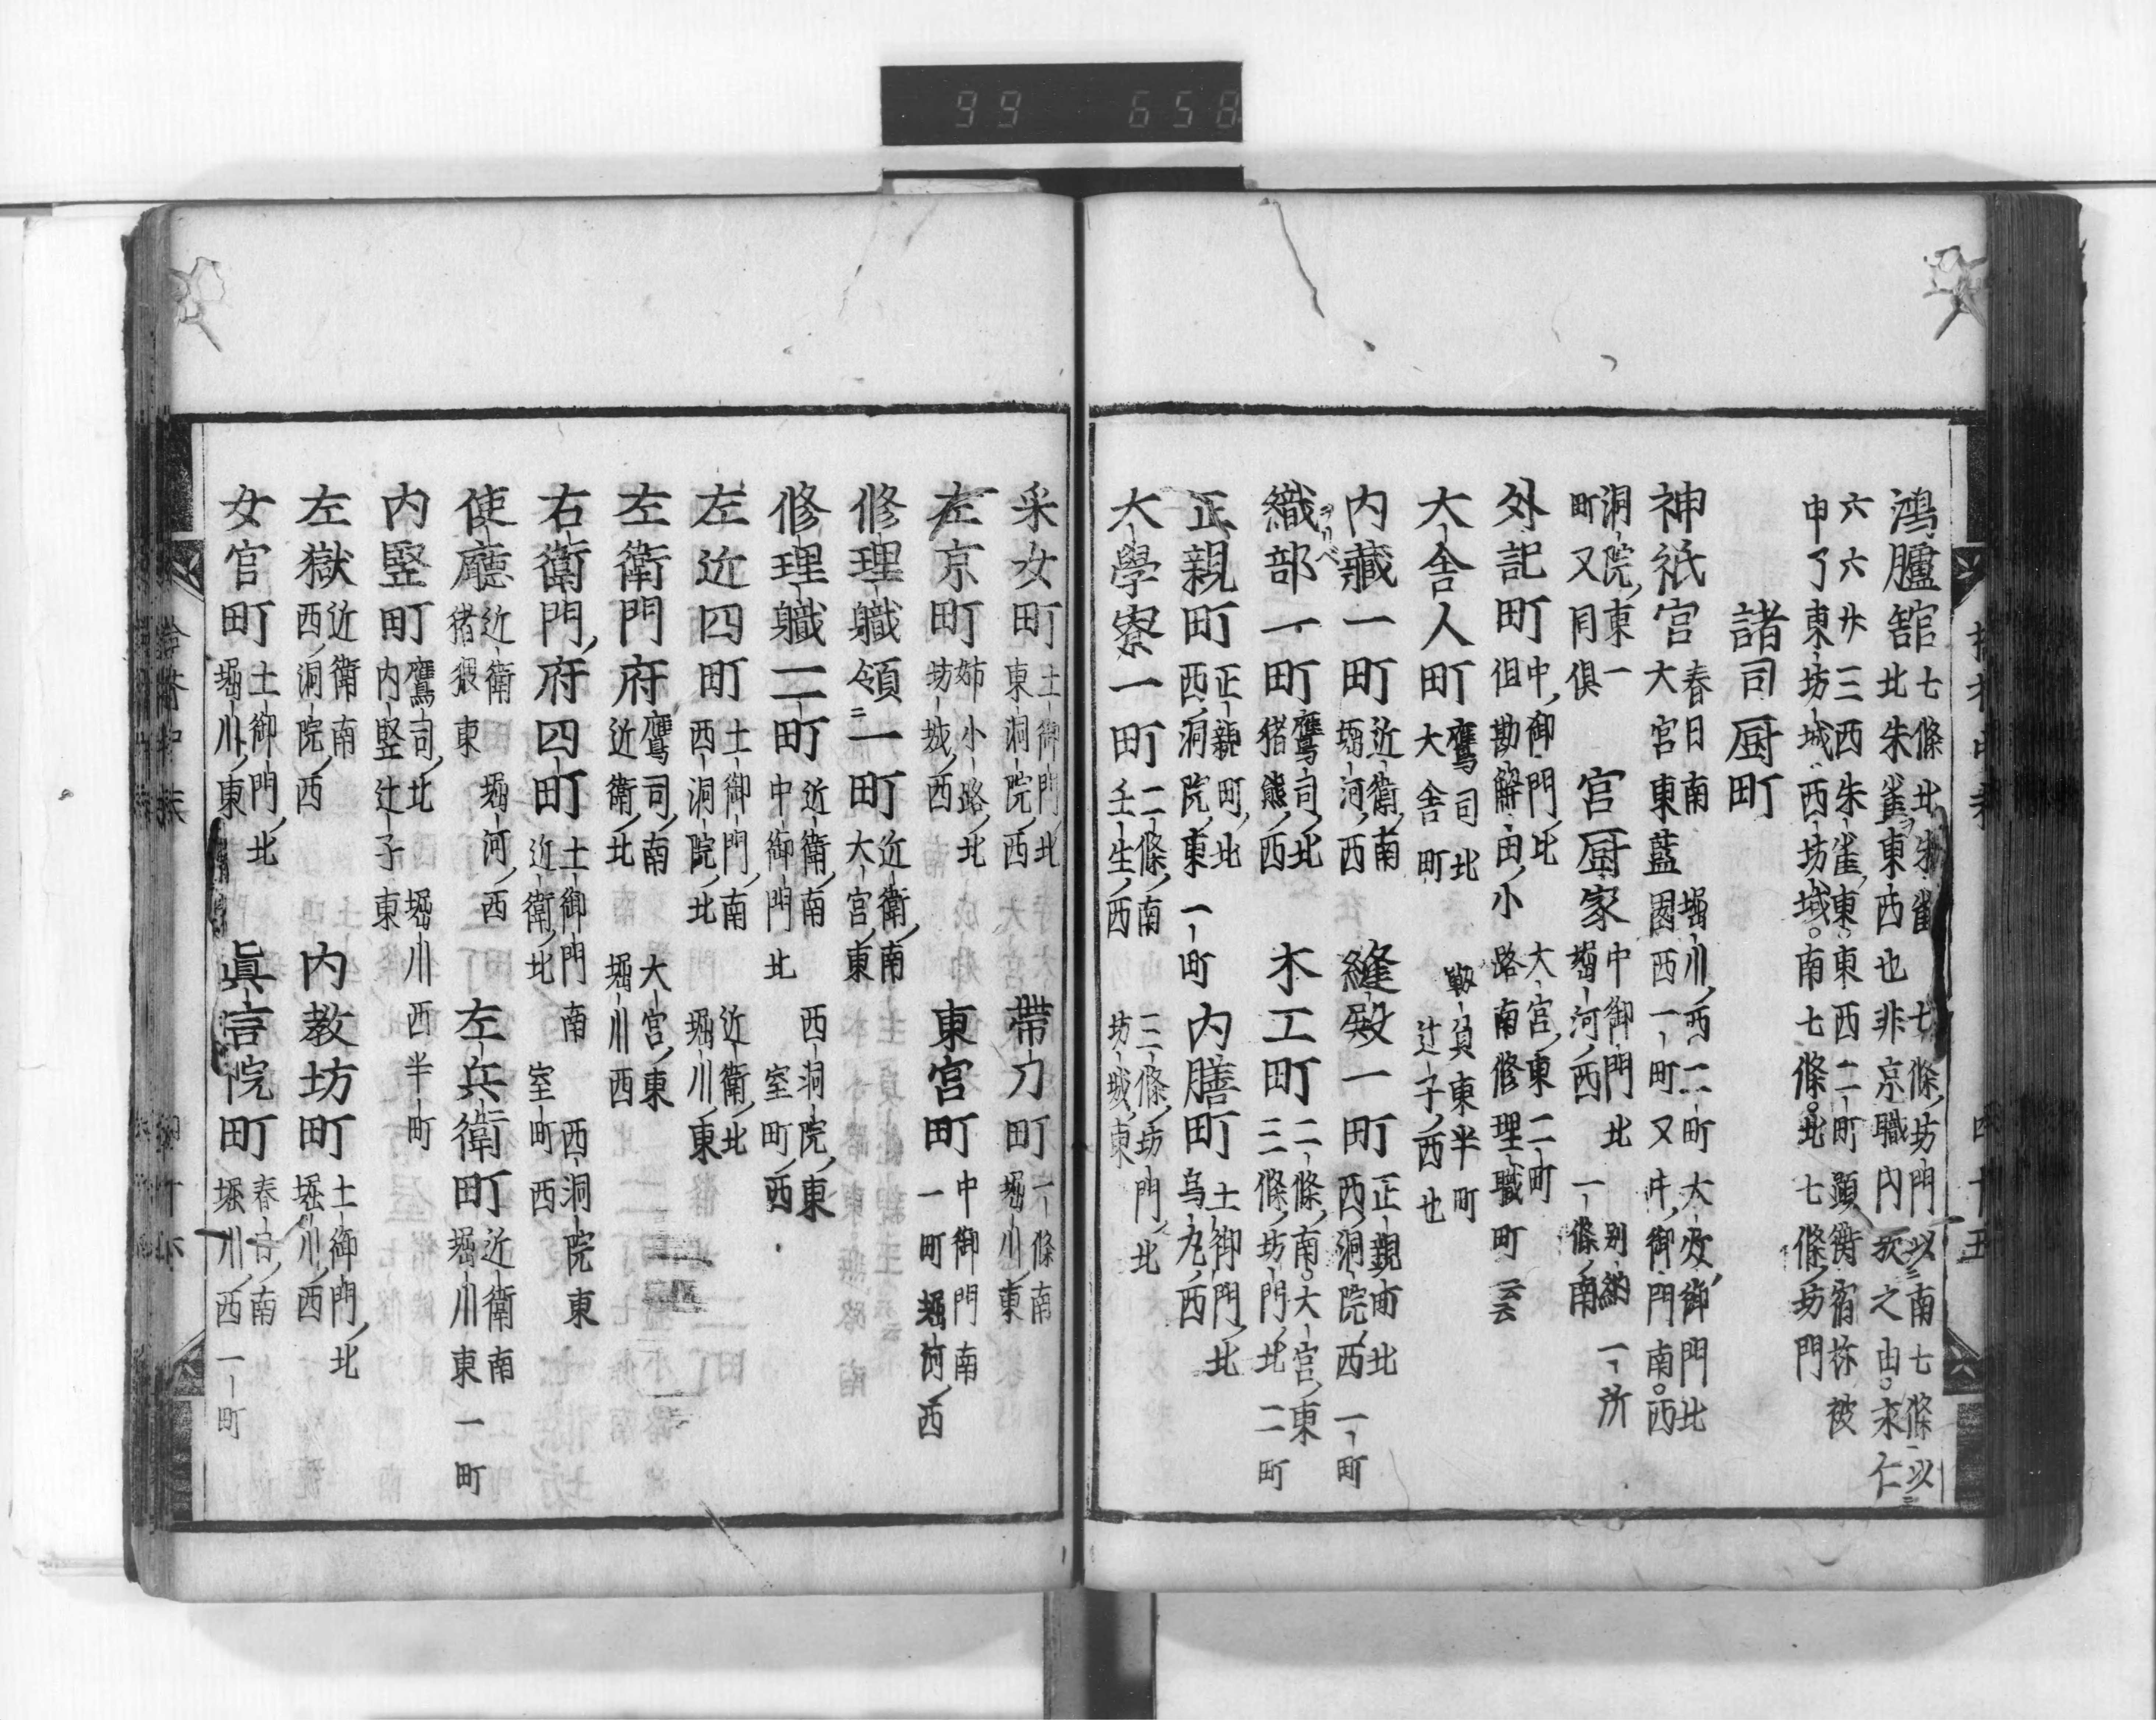 99 658
鴻臚館七條北朱雀東西也七條坊門以南七條以
北朱雀非京職内歟之由永仁
六六廿三西朱雀東東西二町顕衡宿祢被
申了東坊城西坊城南七條北七條坊門
諸司厨町
神祇官春日南大宮東藍園堀川西二町大炊御門北西一町又中御門南西
洞院東一町又同俱
宮厨家中御門北堀河西別納一所一條南
外記町中御門北大宮東二町但勘解由小路南修理職町云云
大舎人町鷹司北大舎町靱負東半町辻子西也
内藏一町近衛南堀河西
縫殿一町正親町北西洞院西一町
織部一町鷹司北猪熊西
木工町二條南大宮東三條坊門北二町
正親町正親町北西洞院東一町
内膳町土御門北烏丸西
大學寮一町二條南壬生西三條坊門北坊城東
采女町土御門北東洞院西
帶刀町一條南堀川東
左京町姉小路北坊城西
東宮町中御門南一町堀河西
修理職領一町近衛南大宮東
修理職二町近衛南中御門北西洞院東室町西
左近四町土御門南西洞院北近衛北堀川東
左衛門府鷹司南近衛北大宮東堀川西
右衛門府四町土御門南近衛北西洞院東室町西
使廳近衛猪猥東堀河西
左兵衛町近衛南堀川東一町
内竪町鷹司北内竪辻子東堀川西半町
左獄近衛南西洞院西
内教坊町土御門北堀川西
女官町土御門北堀川東
眞言院町春日南堀川西一町
四十五